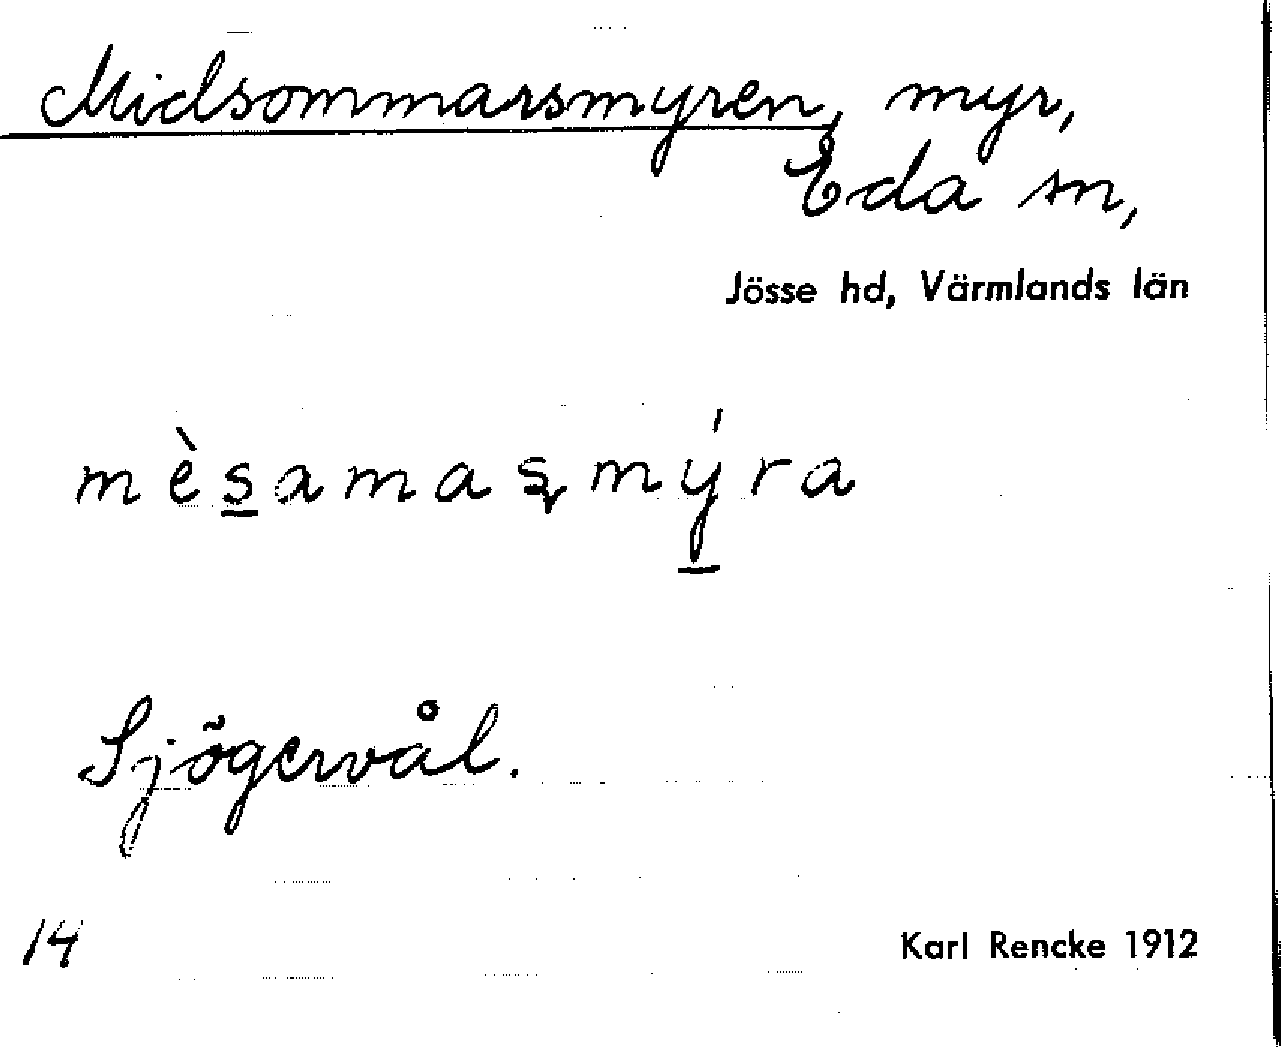 Midsommarsmyren, myr,
Eda sn,
Jösse hd, Värmlands län
mès̲amaʂmý̲ra
Sjögervål.
14
Karl Rencke 1912